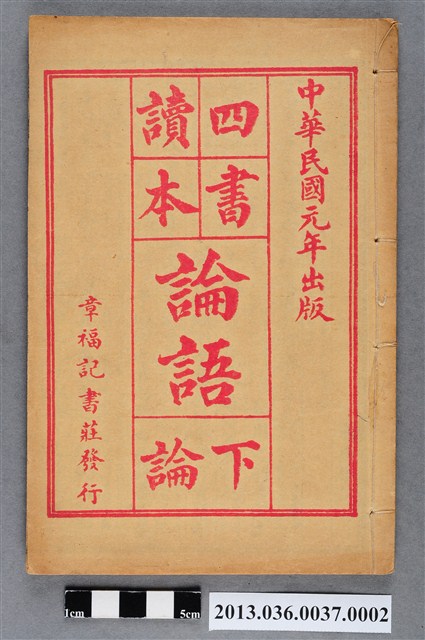 中華民國元年出版
四書
讀本
論語
下論
章福記書莊發行
1cm
5cm
2013.036.0037.0002